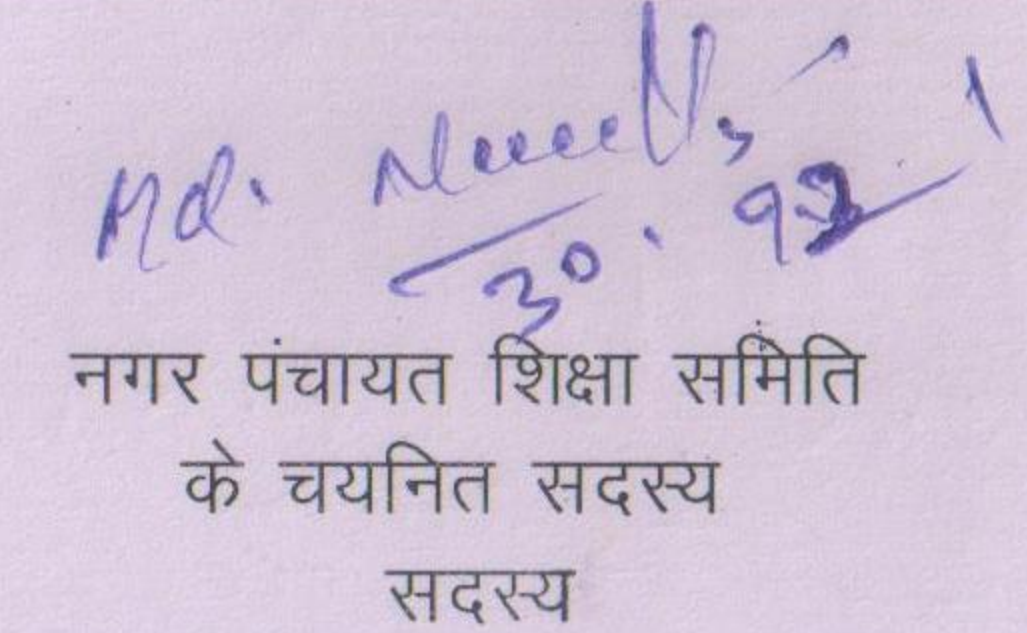 Md.
30.
नगर पंचायत शिक्षा समिति
के चयनित सदस्य
सदस्य